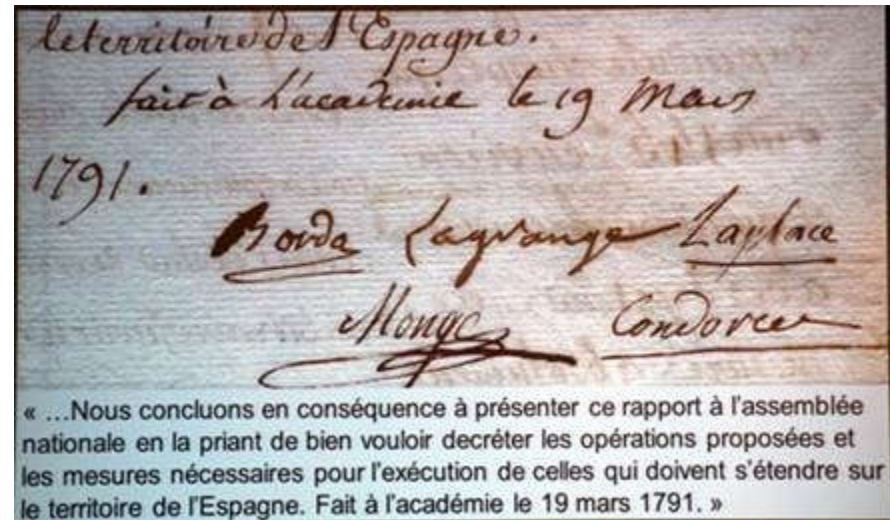 le territoire de l'Espagne.
fait à L'academie le 19 Mars
1791.
Borda Lagrange Laplace
Monge Condorcet
« …Nous concluons en conséquence à présenter ce rapport à l'assemblée
nationale en la priant de bien vouloir decréter les opérations proposées et
les mesures nécessaires pour l'exécution de celles qui doivent s'étendre sur
le territoire de l'Espagne. Fait à l'académie le 19 mars 1791. »